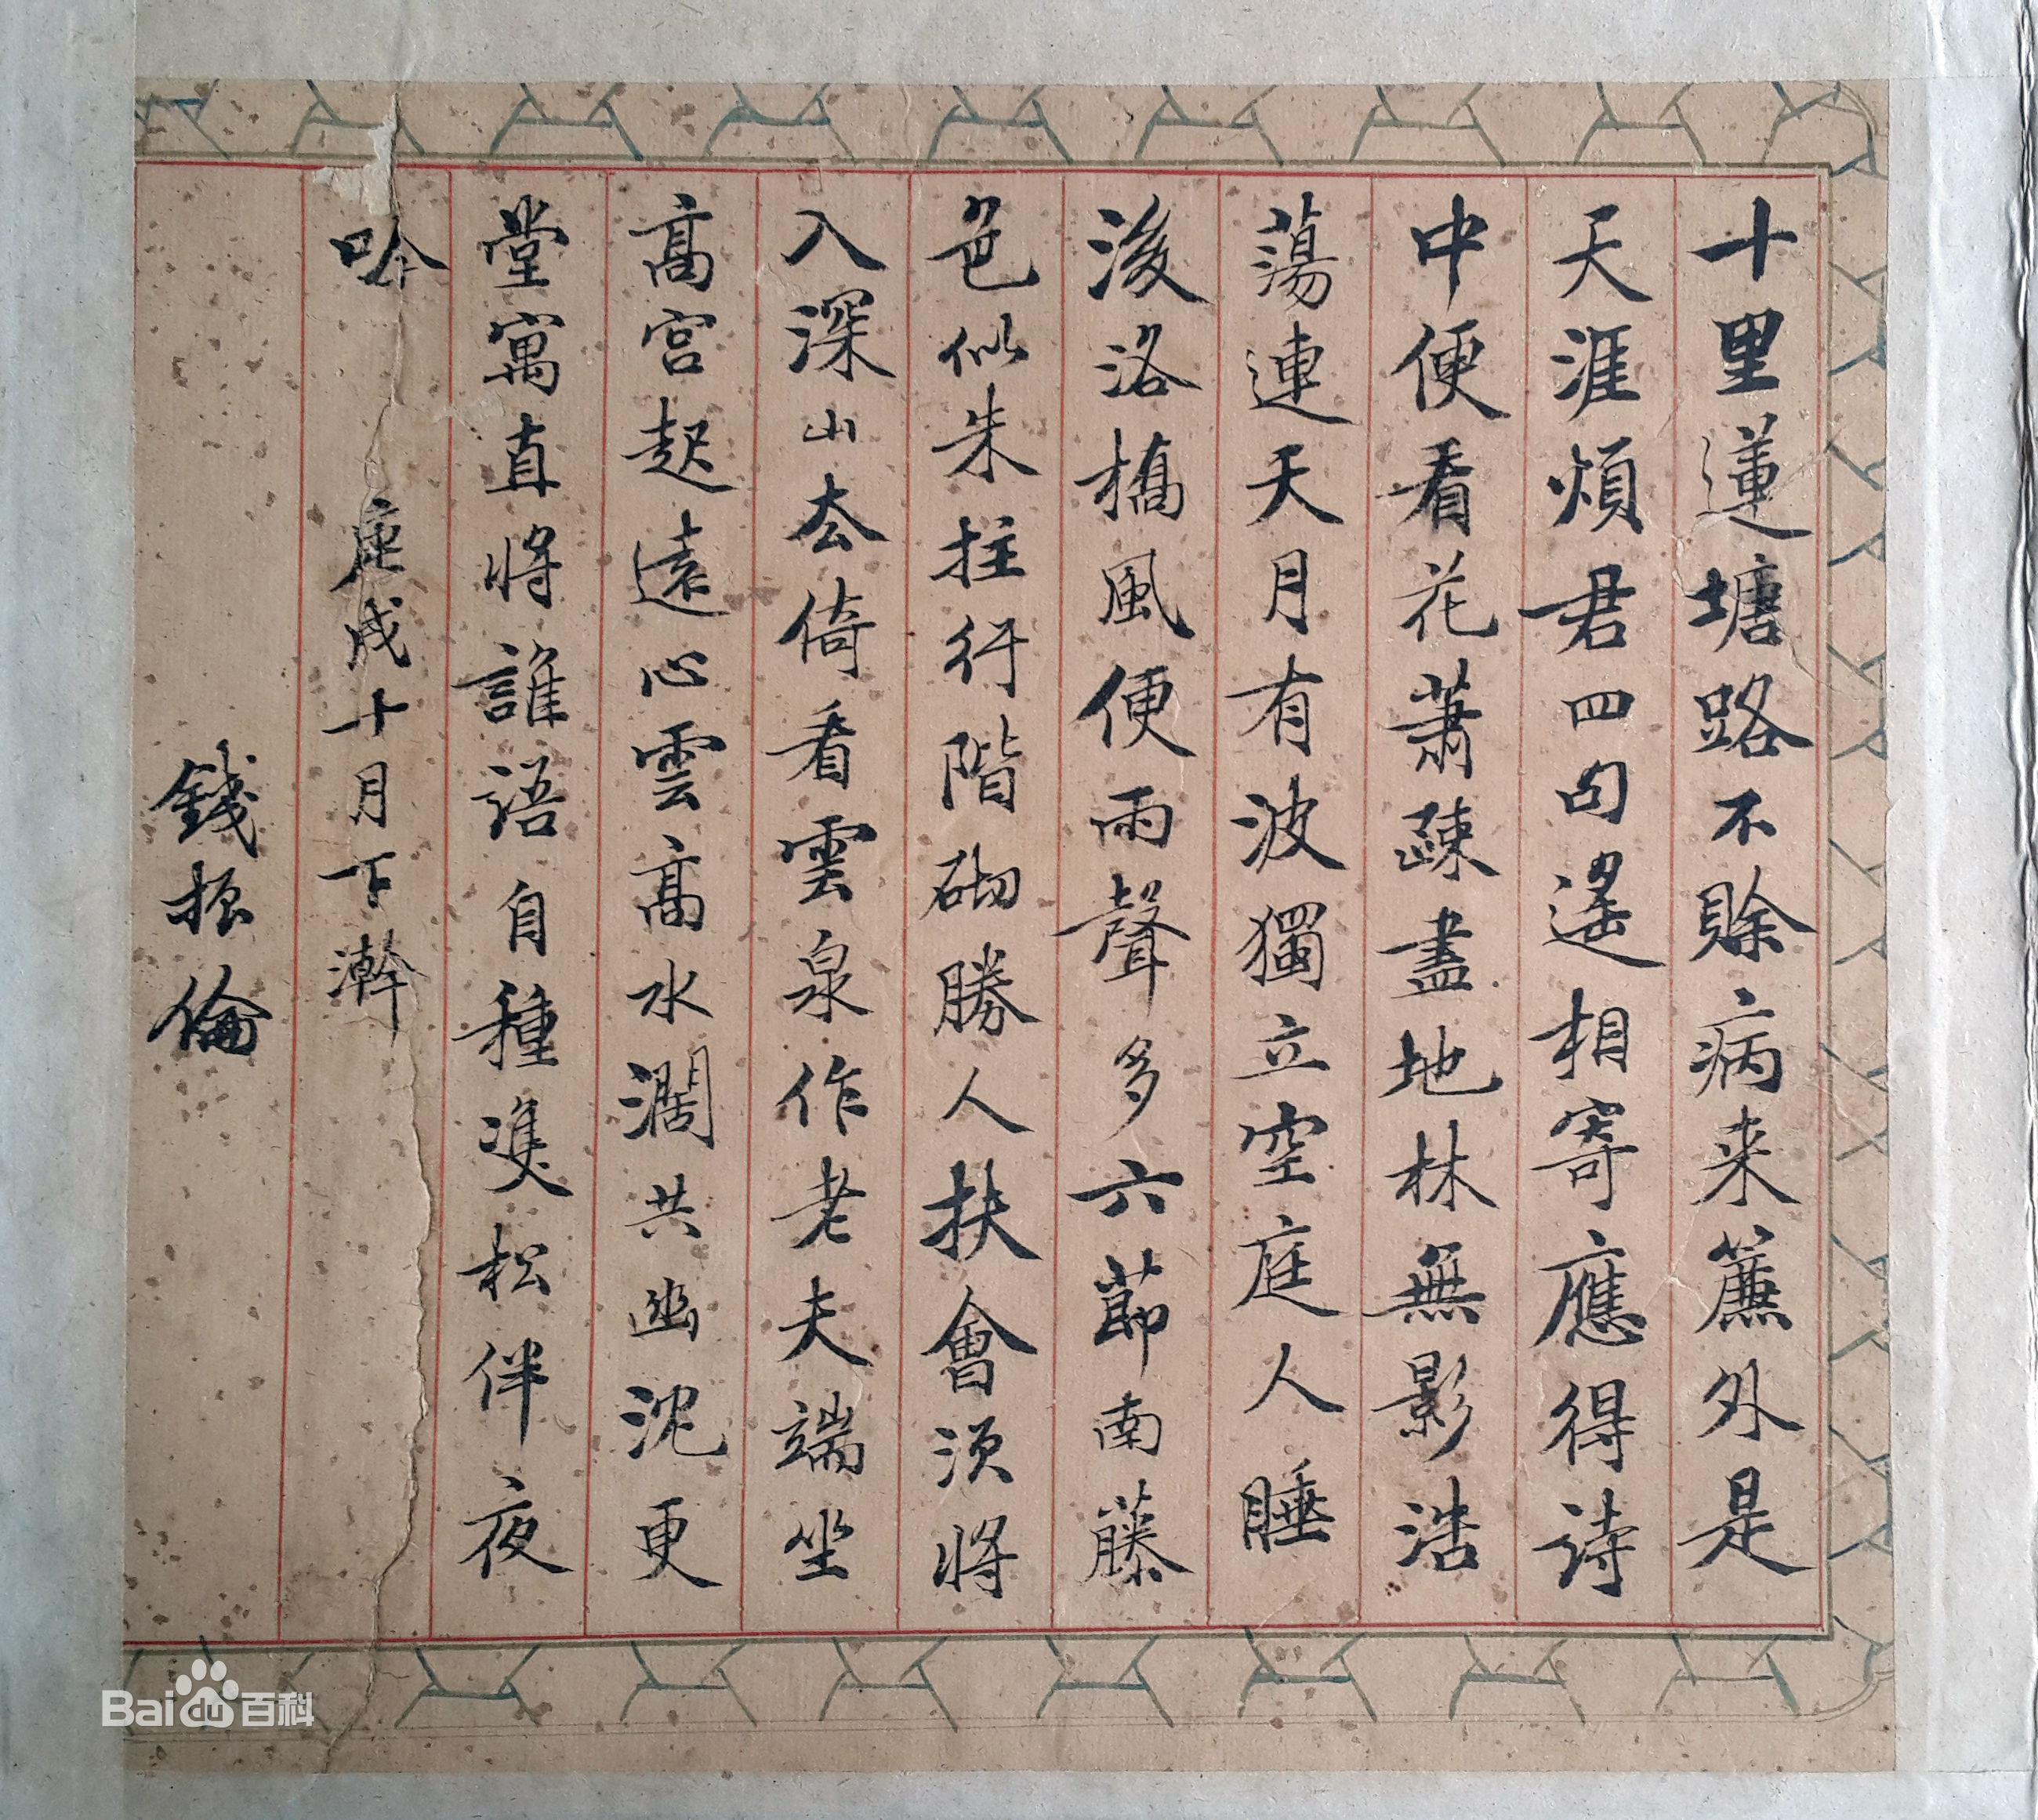 十里蓮塘路不賒病来簾外是
天涯煩君四句遙相寄應得詩
中便看花蕭疎盡地林無影浩
蕩連天月有波獨立空庭人睡
後洛橋風便雨聲多六節南藤
色似朱拄行階砌勝人扶會須將
入深山去倚看雲泉作老夫端坐
高宮起遠心雲高水濶共幽沈更
堂寓直將誰語自種雙松伴夜
吟　庚戌十月下澣
錢振倫
Baidu百科